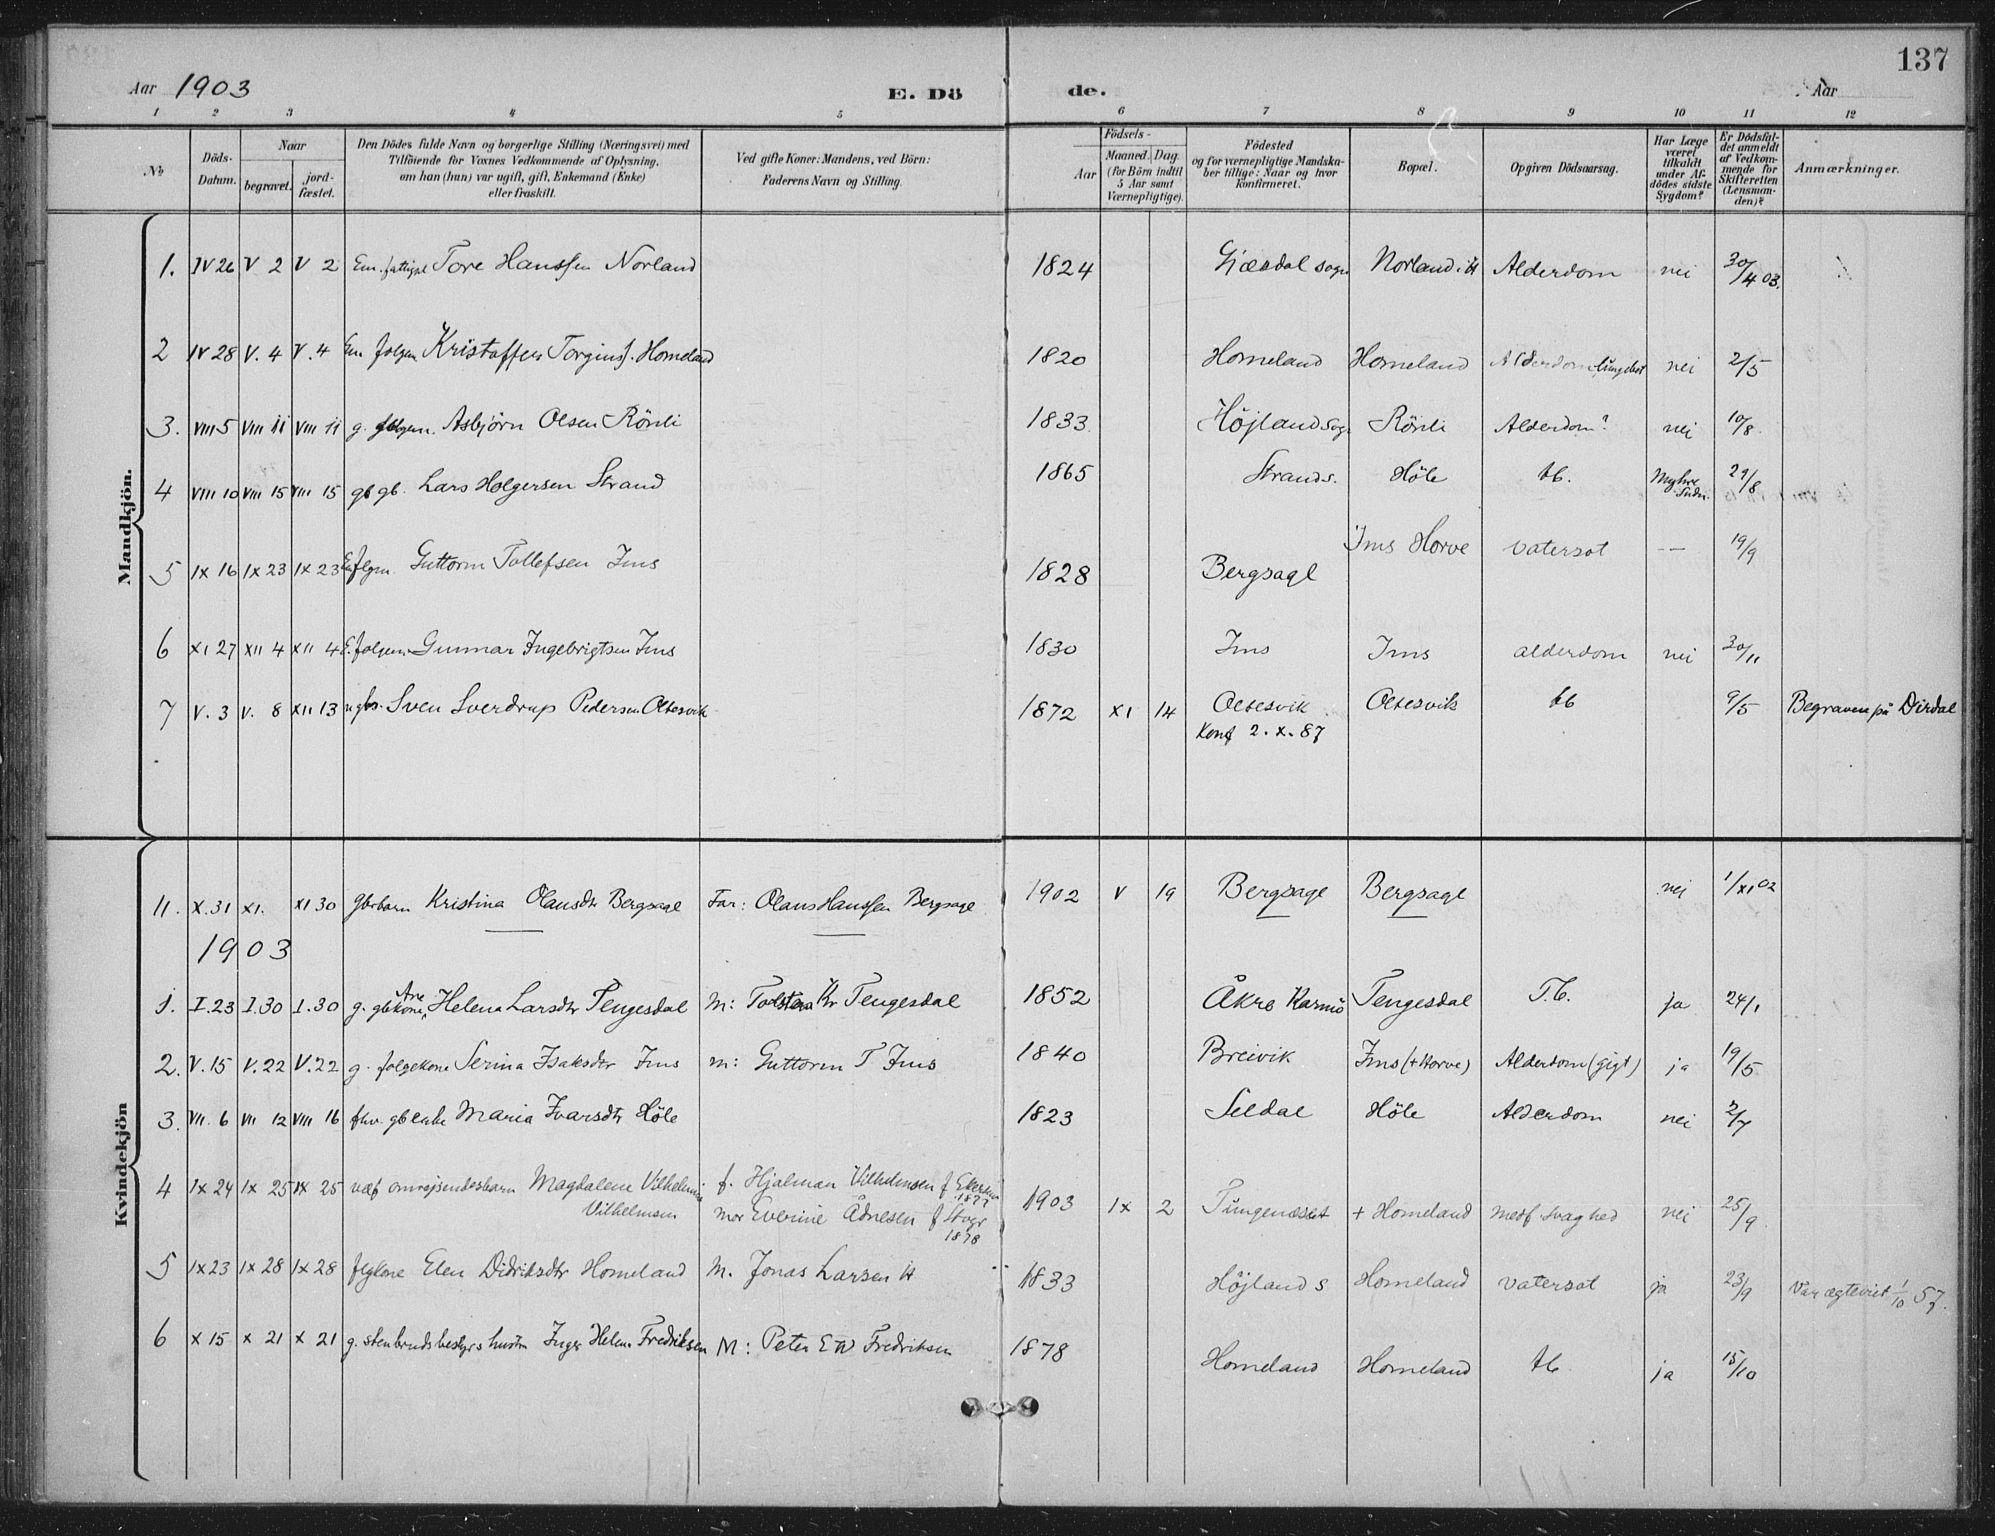 137
Aar 1903 E. Dö de. Aar
1 2 3 4 5 6 7 8 9 10 11 12
No
Döds-Datum.
Naar
begravet. jord-fæstet.
Den Dödes fulde Navn og borgerlige Stilling (Næringsvei) med
Tilföiende for Voxnes Vedkommende af Oplysning,
om han (hun) var ugift, gift, Enkemand (Enke)
eller fraskilt.
Ved gifte Koner: Mandens, ved Börn:
Faderens Navn og Stilling.
Födsels-
Aar Maaned. Dag.
(for Börn indtil
5 Aar samt
Værnepligtige).
Födested
og for værnepligtige Mandska-
ber tillige: Naar og hvor
konfirmeret.
Bopæl.
Opgiven Dödsaarsag.
Har Læge
været
tilkaldt
under Af-
dödes sidste
Sygdom?
Er Dödsfal-
det anmeldt
af Vedkom-
mende for
Skifteretten
(Lensman-
den)?
Anmærkninger.
Mandkjön.
1. IV 26 V 2 V 2 Em. fattigl Tore Hanssen Norland 1824 Gjæsdal sogn Norland i H Alderdom nei 30/4 03.
2 IV 28 V. 4 V. 4 Em folgem Kristoffer Torginsf. Homeland 1820 Homeland Homeland Alderdom lungebet nei 2/5
3. VIII 5 VIII 11 VIII 11 g. Asbjørn Olsen Rönli 1833 Höjland sogn Rönli Alderdom? nei 10/8.
4 VIII 10 VIII 15 VIII 15 g gb. Lars Holgersen Strand 1865 Strand s. Höle tb. Myhre Sndn. 29/8
5 IX 16 IX 23 IX 23 Em flgm. Guttorm Tollefsen Ims 1828 Bergsagl Ims Horve vatersot — 19/9
6 XI 27 XII 4 XII 4 E. folgem Gunnar Ingebrigtsen Ims 1830 Ims Ims alderdom nei 30/11
7 V. 3 V. 8 XII 13 ugbs. Sven Sverdrup Pedersen Oltesvik 1872 XI 14 Oltesvik Oltesvik tb 9/5 Begraven på Dirdal
Konf 2. X. 87
Kvindekjön
11. X. 31 XI. XI 30 gbrbarn Kristina Olausdtr Bergsagl Far: Olaus Hanssen Bergsagl 1902 V 19 Bergsagl Bergsagl nei 1/XI 02
1903
1. I. 23 I. 30 I. 30 g. gbkone, Ane Helena Larsdtr Tengesdal M: Torstein Kr Tengesdal 1852 Åkre Karmö Tengesdal T.b. ja 24/1
2. V. 15 V. 22 V. 22 g. folgekone Serina Isaksdtr Ims m: Guttorm T Ims 1840 Breivik Ims (+ Horve) Alderdom (gigt) ja 19/5
3. VII. 6 VII 12 VIII 16 fhv. gbenke Maria Ivarsdtr Höle 1823 Seldal Höle Alderdom nei 7/7
4 IX 24 IX 25 IX 25 uæf omrejsendesbarn Magdalene Vilhelmine f. Hjalmar Vilhelmsen f Ekersun 1877 1903 IX 2 Tungenæset + Homeland medf svaghed nei 25/9.
Vilhelmsen mor Everine Ådnesen f Stvgr 1878
5 IX 23 IX 28 IX 28 flgkone Elen Didriksdtr Homeland M. Jonas Larsen H 1833 Höjland s Homeland vatersot ja 23/9 Var ægteviet 1/10 57.
6 X 15 X 21 X 21 g. stenbrudsbestyrs hustru Inger Helene Fredriksen M: Peter E W Fredriksen 1878 Homeland Homeland tb. ja 15/10